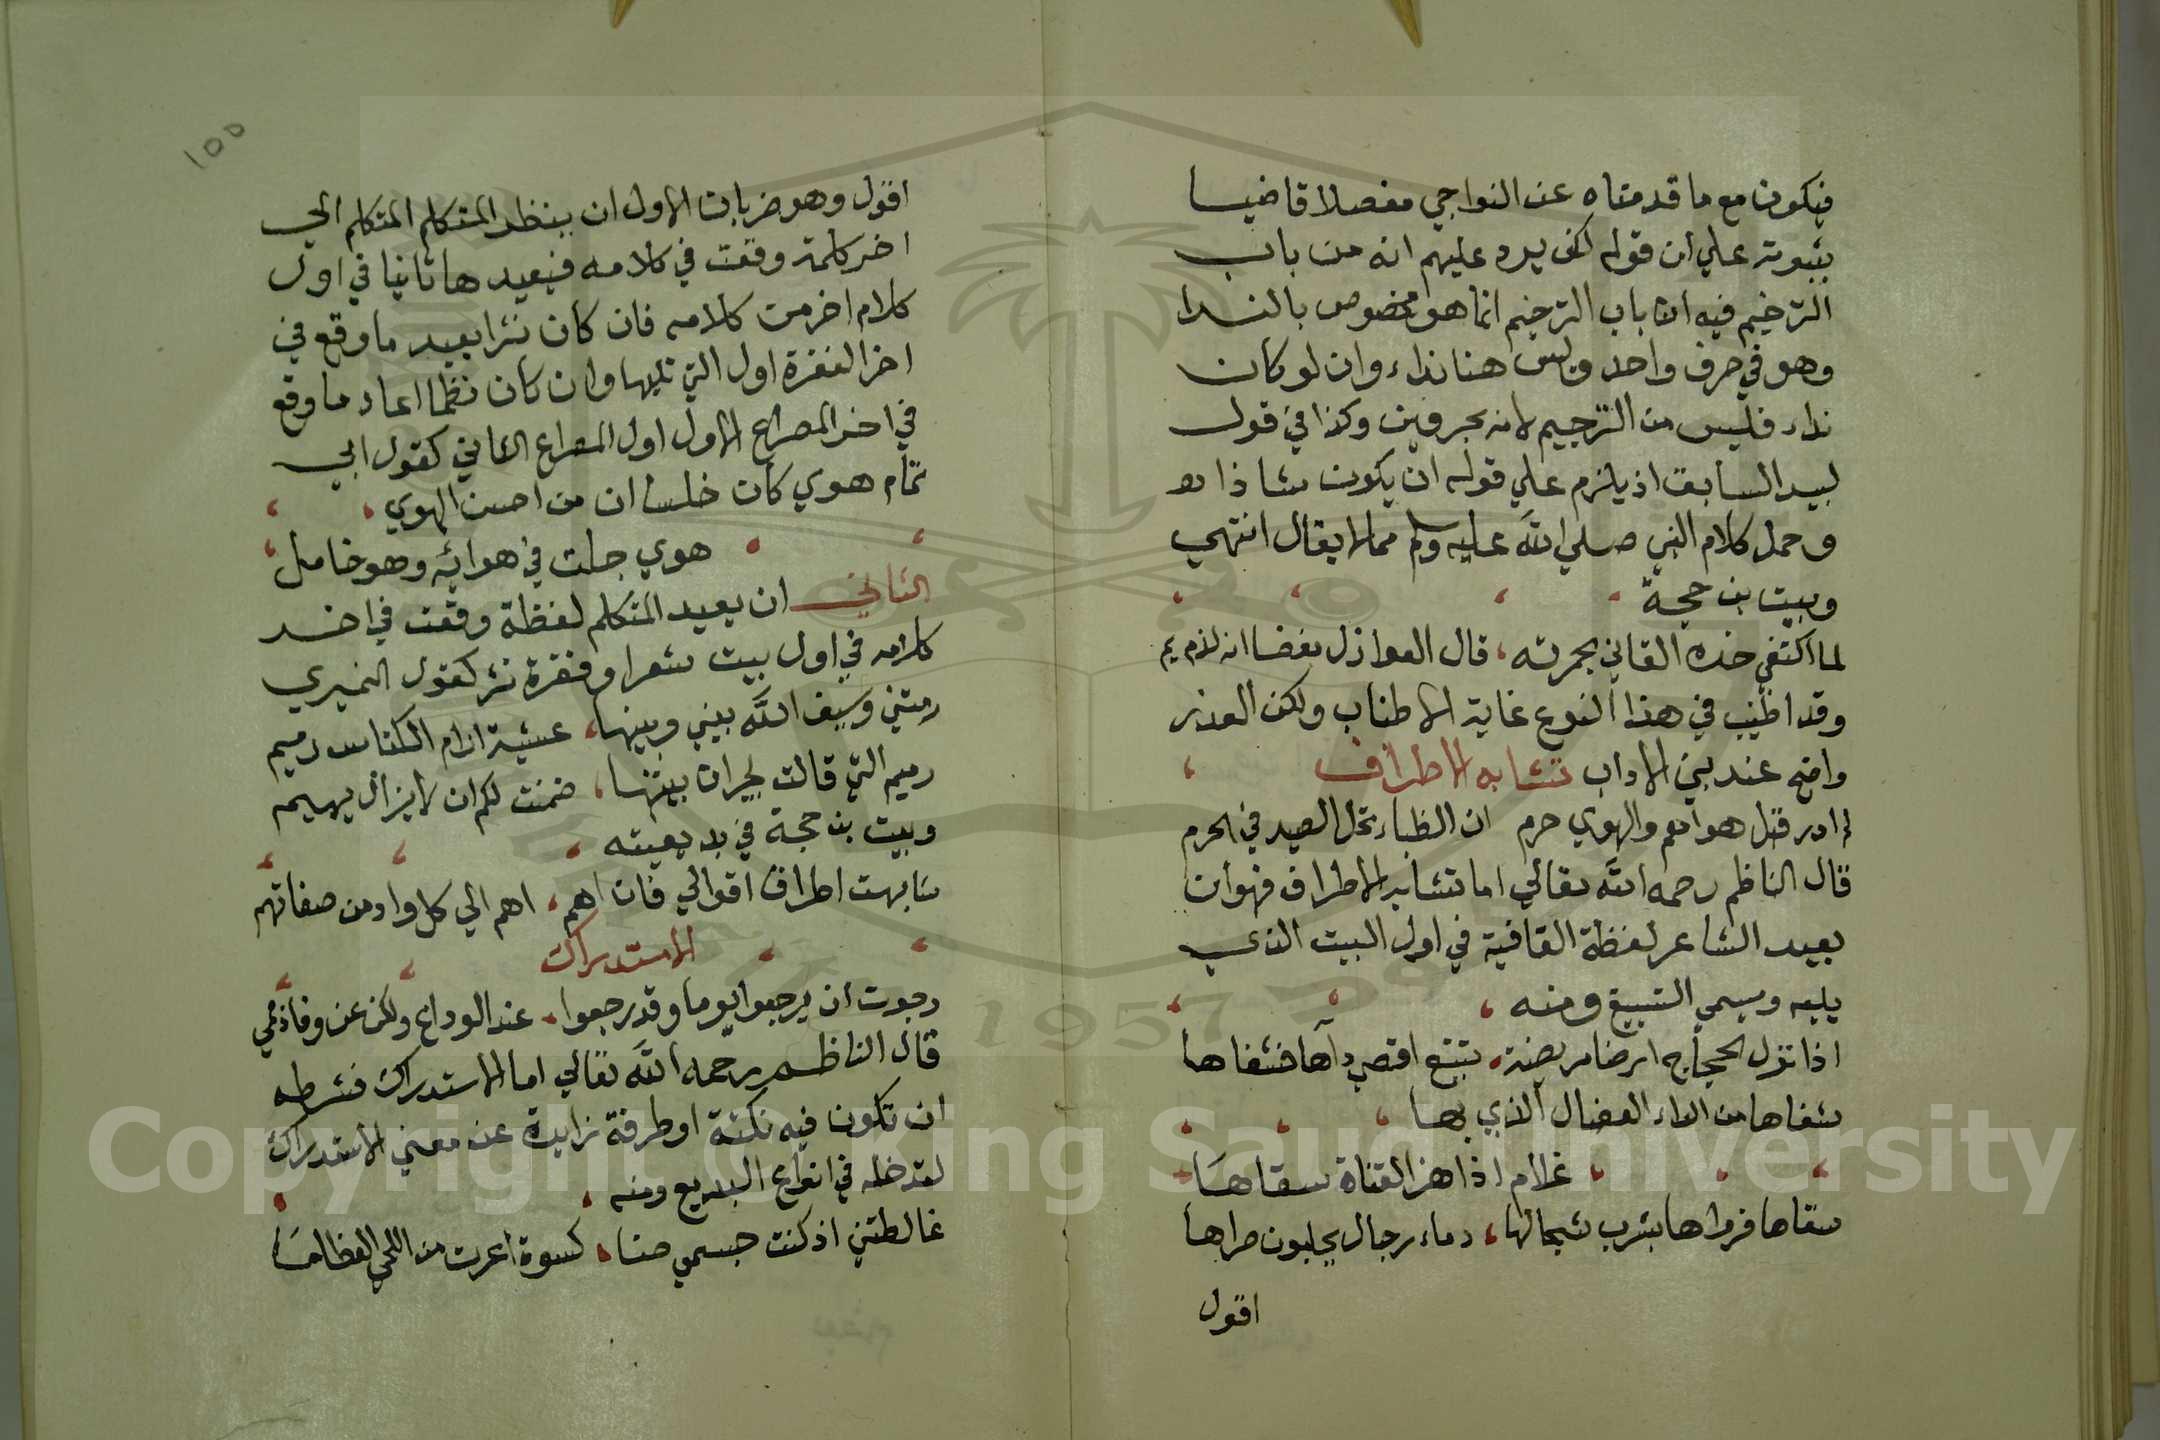 فيكون مع ما قدمناه عن النواجي مفصلا قاضيا
بثبوته علي ان قوله لكن يرد عليهم انه من باب
الترخيم فيه ان باب الترخيم انما هو مخصوص بالندا
وهو في حرف واحد وليس هنا نداء وان لو كان
نداء فليس من الترخيم لانه بحرفين وكذا في قول
لبيد السابق اذ يلزم علي قوله ان يكون شاذا
وحمل كلام النبي صلي الله عليه وسلم مما لا يقال انتهي
وبيت بن حجة
لما اكتفي خده القاني بحمرته قال العواذل بغضا انه لدم
وقد اطنب في هذا النوع غاية الاطناب ولكن العذر
واضح عند بني الاداب تشابه الاطراف
لم ادر قبل هواهم والهوي حرم ان الظباء تحل الصيد في الحرم
قال الناظم رحمه الله تعالي اما تشابه الاطراف فهو ان
يعيد الشاعر لفظة القافية في اول البيت الذي
يليه ويسمي التسبيغ ومنه
اذا نزل الحجاج ارضا مريضة تتبع اقصي دآها فشفاها
شفاها من الداء العضال الذي بها
غلام اذا هز القناة سقاها
سقاها فرواها بشرب سجالها دماء رجال يحلبون صراها
اقول
١٥٥
اقول وهو ضربان الاول ان ينظر المتكلم المتكلم الي
اخر كلمة وقعت في كلامه فيعيدها ثانيا في اول
كلام اخر من كلامه فان كان نثرا يعيد ما وقع في
اخر الفقرة اول التي تليها وان كان نظما اعاد ما وقع
في اخر المصراع الاول اول المصراع الثاني كقول ابي
تمام هوي كان خلسا ان من احسن الهوي
هوي جلت في هوائه وهو خامل
الثاني ان يعيد المتكلم لفظة وقعت في اخر
كلامه في اول بيت شعر او فقرة نثر كقول النميري
رمتني وسيف الله بيني وبينها عشية ارام الكناس رميم
رميم التي قالت لجيران بيتها ضمنت لكم ان لا يزال يهيم
وبيت بن حجة في بديعيته
شابهت اطراف اقوالي فان اهم اهم الي كل واد من صفاتهم
الاستدراك
رجوت ان يرجعوا يوما وقد رجعوا عند الوداع ولكن عن وفا ذممي
قال الناظم رحمه الله تعالي اما الاستدراك فشرطه
ان تكون فيه نكتة او طرفة زايدة عن معني الاستدراك
لتدخله في انواع البديع ومنه
غالطتني اذ كنت جسمي ضنا كسوة اعرت من اللحم العظاما